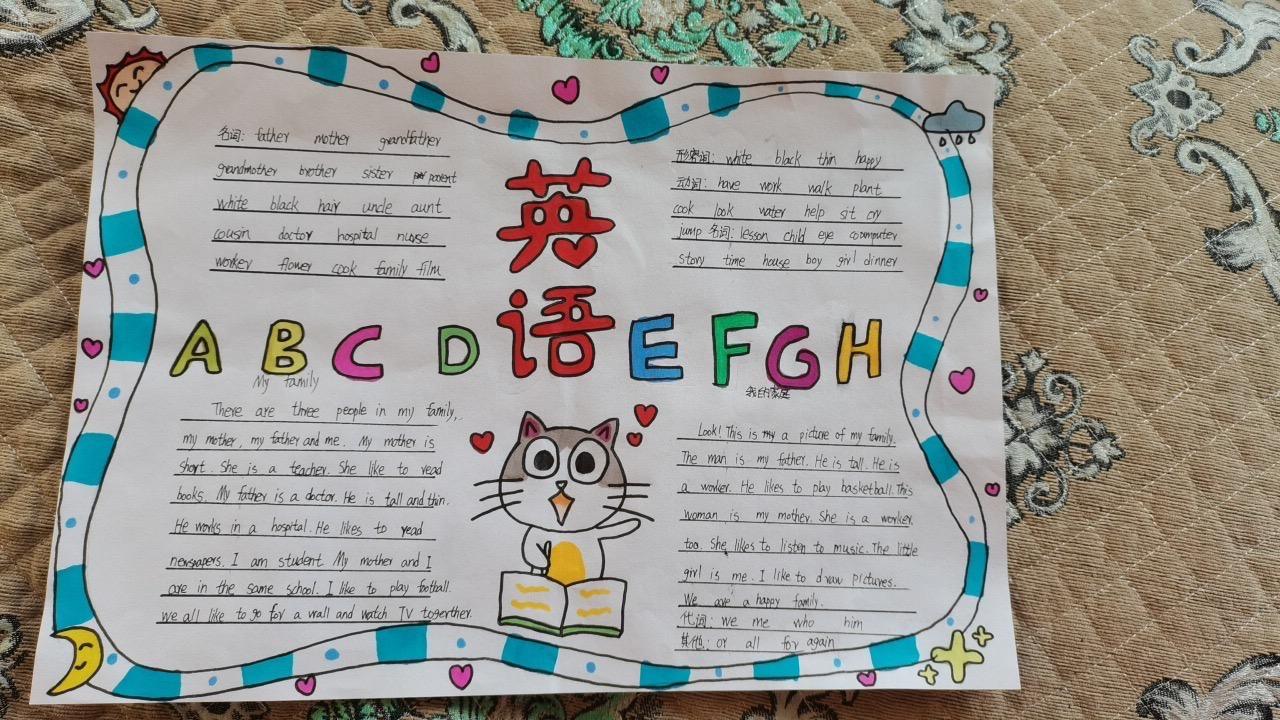 名词: father mother grandfather
grandmother brother sister parent
white black hair uncle aunt
cousin doctor hospital nurse
worker flower cook family film
英语
形容词: white black thin happy
动词: have work walk plant
cook look water help sit cry
jump 名词: lesson child eye coumputer
story time house boy girl dinner
A B C D E F G H
My family
There are three people in my family,
my mother, my father and me. My mother is
short. She is a teacher. She like to read
books. My father is a doctor. He is tall and thin.
He works in a hospital. He likes to read
newspapers. I am student My mother and I
are in the same school. I like to play fotball.
we all like to go for a wall and watch TV togerther.
我的家庭
Look! This is a picture of my family.
The man is my father. He is tall. He is
a worker. He likes to play basketball. This
woman is my mother. She is a worker.
too. She likes to listen to music. The little
girl is me. I like to draw pictures.
We are a happy family.
代词: we me who him
其他: or all for again